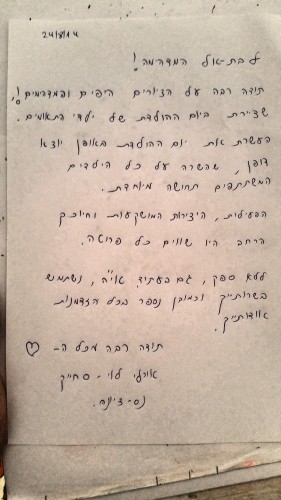 24/8/14
לבת-אל המדהימה!
תודה רבה על הציורים היפים והמדהימים!,
שציירת ביום ההולדת של ילדי התאומים.
העשרת את יום ההולדת באופן יוצא
דופן, שהשרה על כל הילדים
המשתתפים תחושה מיוחדת.
הפעילות, היצירות המושקעות וחיוכך
הרחב היו שווים כל פרוטה.
ללא ספק, גם בעתיד אי"ה, נשתמש
בשרותייך וכמובן נספר בכל הזדמנות
אודותייך.
תודה רבה מכל ה-
אורלי לוי - סחייק
נס-ציונה.